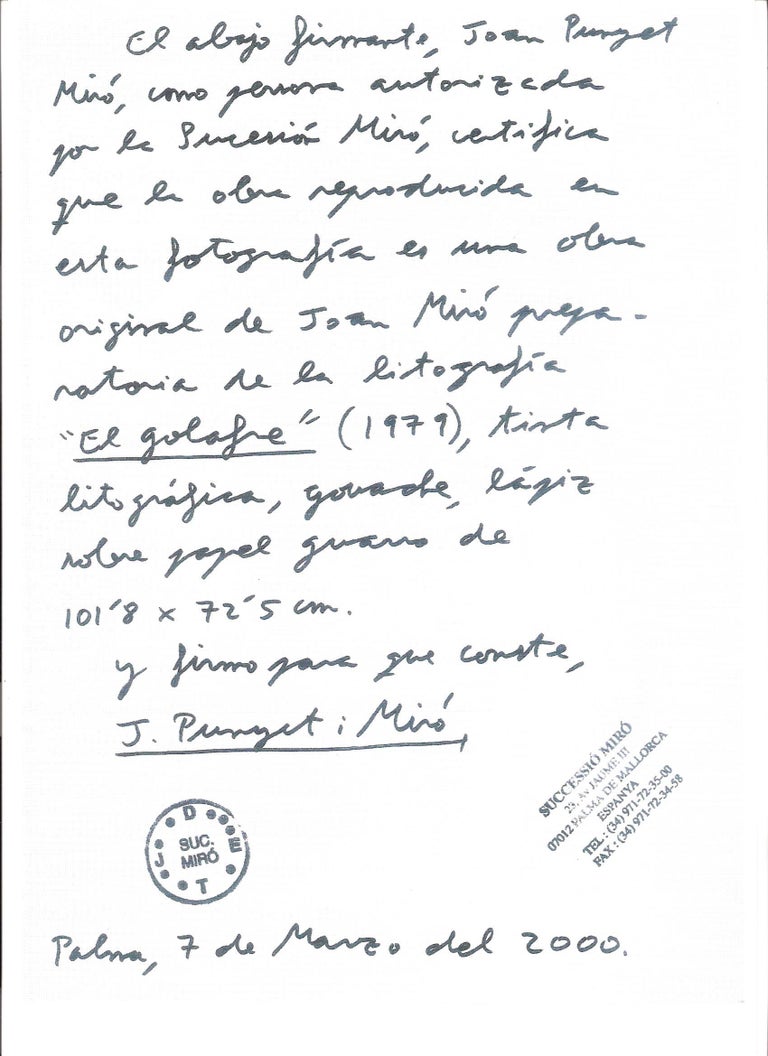 El abajo firmante, Joan Punyet
Miró, como persona autorizada
por la Sucesión Miró, certifica
que la obra reproducida en
esta fotografía es una obra
original de Joan Miró prepa-
ratoria de la litografía
"El golafre" (1979), tinta
litográfica, gouache, lápiz
sobre papel guarro de
101'8 x 72'5 cm.
y firmo para que conste,
J. Punyet i Miró
SUCCESSIÓ MIRÓ
23, AV JAUME III
07012 PALMA DE MALLORCA
ESPANYA
TEL : (34) 971-72-35-00
FAX : (34) 971-72-34-58
D
J SUC. E
MIRÓ
T
Palma, 7 de Marzo del 2000.